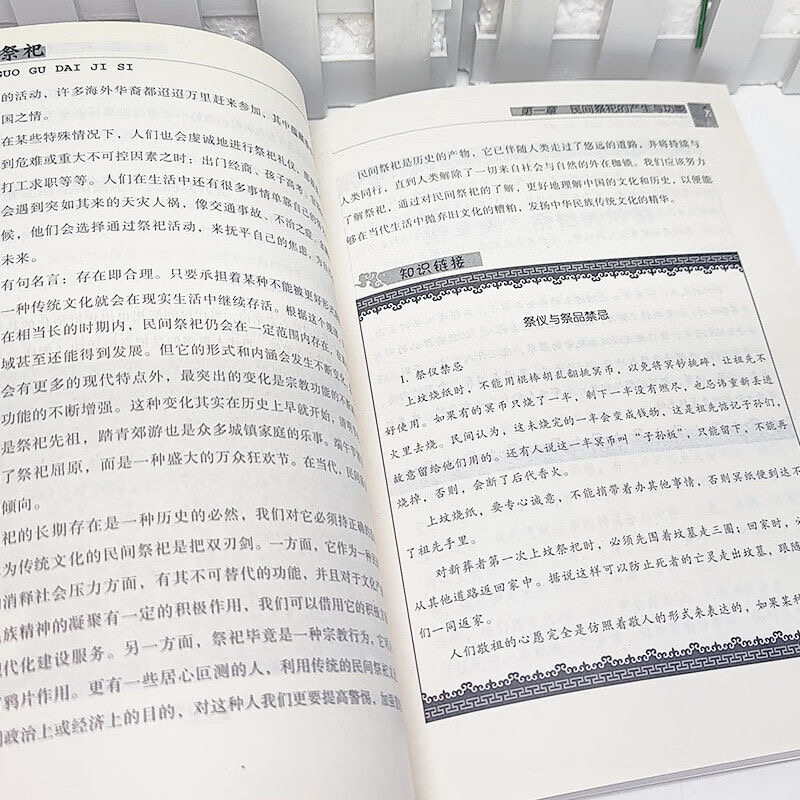 祭祀
GUO GU DAI JI SI
的活动，许多海外华裔都迢迢万里赶来参加，其中蕴
国之情。
在某些特殊情况下，人们也会虔诚地进行祭祀礼仪，
到危难或重大不可控因素之时：出门经商、孩子高考、
打工求职等等。人们在生活中还有很多事情单靠自己的
会遇到突如其来的天灾人祸，像交通事故、不治之症、
候，他们会选择通过祭祀活动，来抚平自己的焦虑，为
未来。
有句名言：存在即合理。只要承担着某种不能被更好形
一种传统文化就会在现实生活中继续存活。根据这个规
在相当长的时期内，民间祭祀仍会在一定范围内存在，
域甚至还能得到发展。但它的形式和内涵会发生不断变化，
会有更多的现代特点外，最突出的变化是宗教功能的不断
功能的不断增强。这种变化其实在历史上早就开始，清明
是祭祀先祖，踏青郊游也是众多城镇家庭的乐事。端午节
了祭祀屈原，而是一种盛大的万众狂欢节。在当代，民间
倾向。
祀的长期存在是一种历史的必然，我们对它必须持正确的
为传统文化的民间祭祀是把双刃剑。一方面，它作为一种
消释社会压力方面，有其不可替代的功能，并且对于文化
族精神的凝聚有一定的积极作用，我们可以借用它的积极
代化建设服务。另一方面，祭祀毕竟是一种宗教行为，它
鸦片作用。更有一些居心叵测的人，利用传统的民间祭祀
政治上或经济上的目的，对这种人我们更要提高警惕，加强
第一章 民间祭祀的产生与功能
民间祭祀是历史的产物，它已伴随人类走过了悠远的道路，并将持续与
人类同行，直到人类解除了一切来自社会与自然的外在枷锁。我们应该努力
了解祭祀，通过对民间祭祀的了解，更好地理解中国的文化和历史，以便能
够在当代生活中抛弃旧文化的糟粕，发扬中华民族传统文化的精华。
知识链接
祭仪与祭品禁忌
1. 祭仪禁忌
上坟烧纸时，不能用棍棒胡乱翻挑冥币，以免将冥钞挑碎，让祖先不
好使用。如果有的冥币只烧了一半，剩下一半没有燃尽，也忌讳重新丢进
火里去烧。民间认为，这未烧完的一半会变成钱物，这是祖先惦记子孙们，
故意留给他们用的。还有人说这一半冥币叫“子孙板”，只能留下，不能再
烧掉，否则，会断了后代香火。
上坟烧纸，要专心诚意，不能捎带着办其他事情，否则冥纸便到达不
了祖先手里。
对新葬者第一次上坟祭祀时，必须先围着坟墓走三圈；回家时，必
从其他道路返回家中。据说这样可以防止死者的亡灵走出坟墓，跟随
们一同返家。
人们敬祖的心愿完全是仿照着敬人的形式来表达的，如果某种